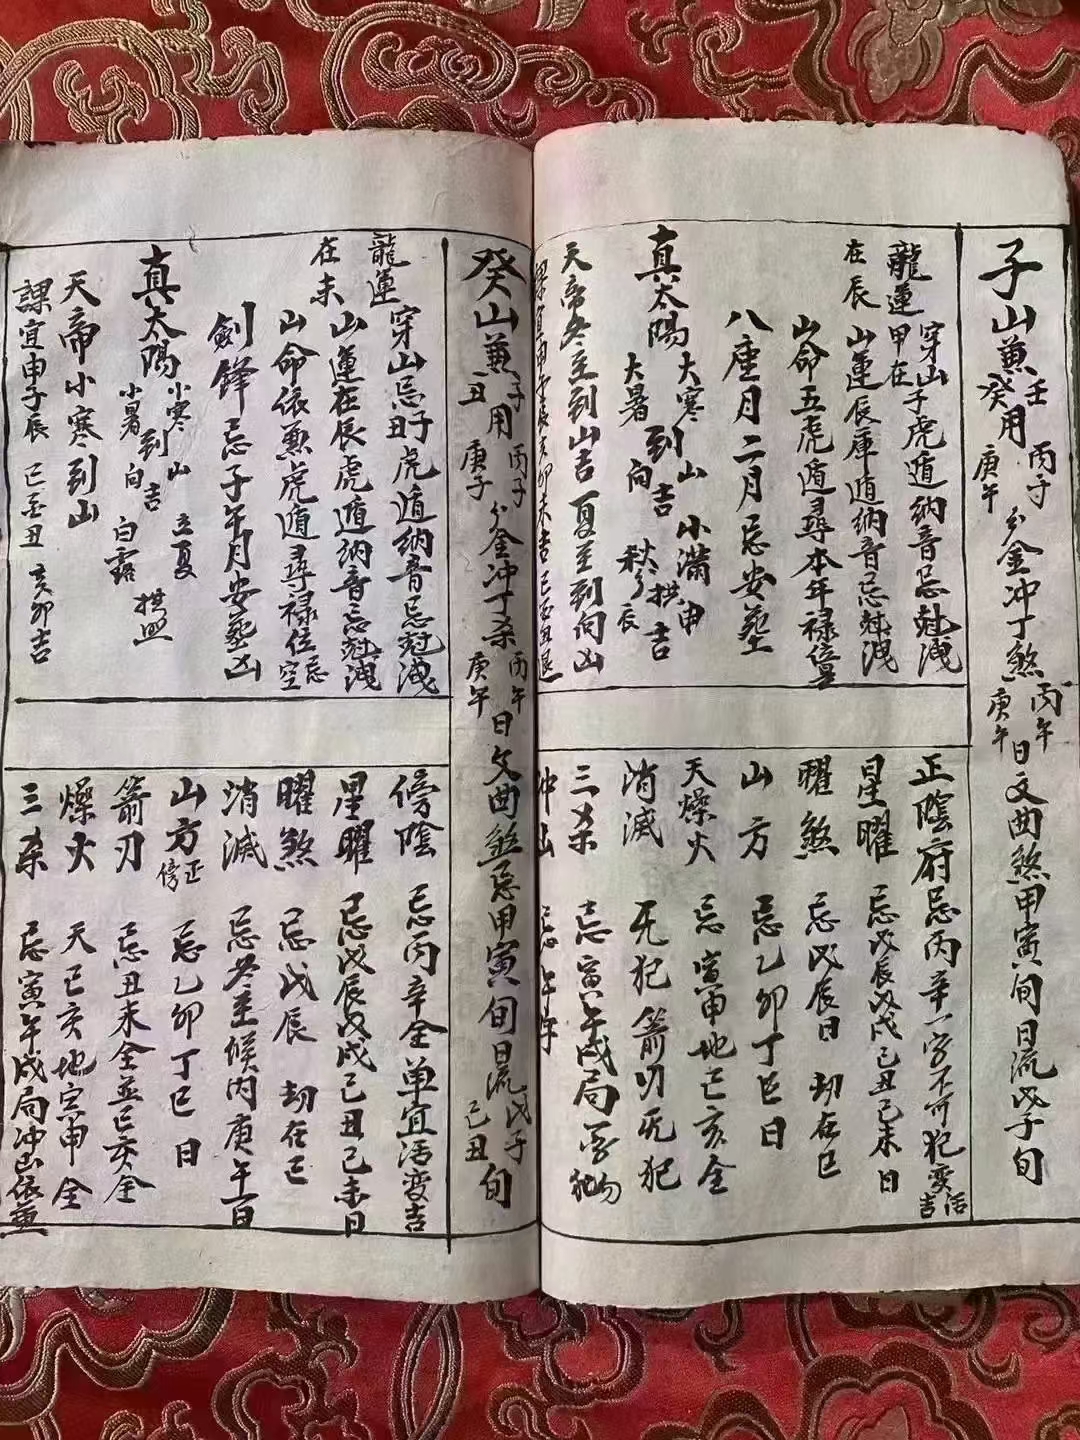 子山兼壬癸用丙子庚午分金冲丁煞丙午庚午日文曲煞甲寅旬日流戊子旬
龍運甲在在辰
穿山子虎遁納音忌尅洩
山運辰庫遁納音忌尅洩
山命五虎遁尋本年祿位
八座月二月忌安塟
真太陽大寒大暑到山向吉小滿秋分拱申辰吉
天帝冬至到山吉夏至到向凶
正陰府忌丙辛一字不可犯变活吉
星曜忌戊辰戊戌己丑己未日
曜煞忌戊辰日刧在巳
山方忌乙卯丁巳日
天燥火忌寅申地巳亥全
消滅旡犯箭刃旡犯
三杀忌寅午戌局
冲山忌午年
癸山兼子丑用丙子庚子分金冲丁杀丙午庚午日文曲煞忌甲寅旬日流戊子己丑旬
龍運在未
穿山忌子丑虎遁納音忌尅洩
山運在辰虎遁納音忌尅洩
山命依兼虎遁尋祿位忌空
劍鋒忌子午月安塟凶
真太陽小寒小暑到山向吉立夏白露拱照
天帝小寒到山
課宜申子辰巳酉丑亥卯吉
傍陰忌丙辛全单宜活变吉
星曜忌戊辰戊戌己丑己未日
曜煞忌戊辰刧在巳
消滅忌冬至候内庚午一日
山方正傍忌乙卯丁巳日
箭刃忌丑未全並巳亥全
燥火天巳亥地寅申全
三杀忌寅午戌局冲山依兼